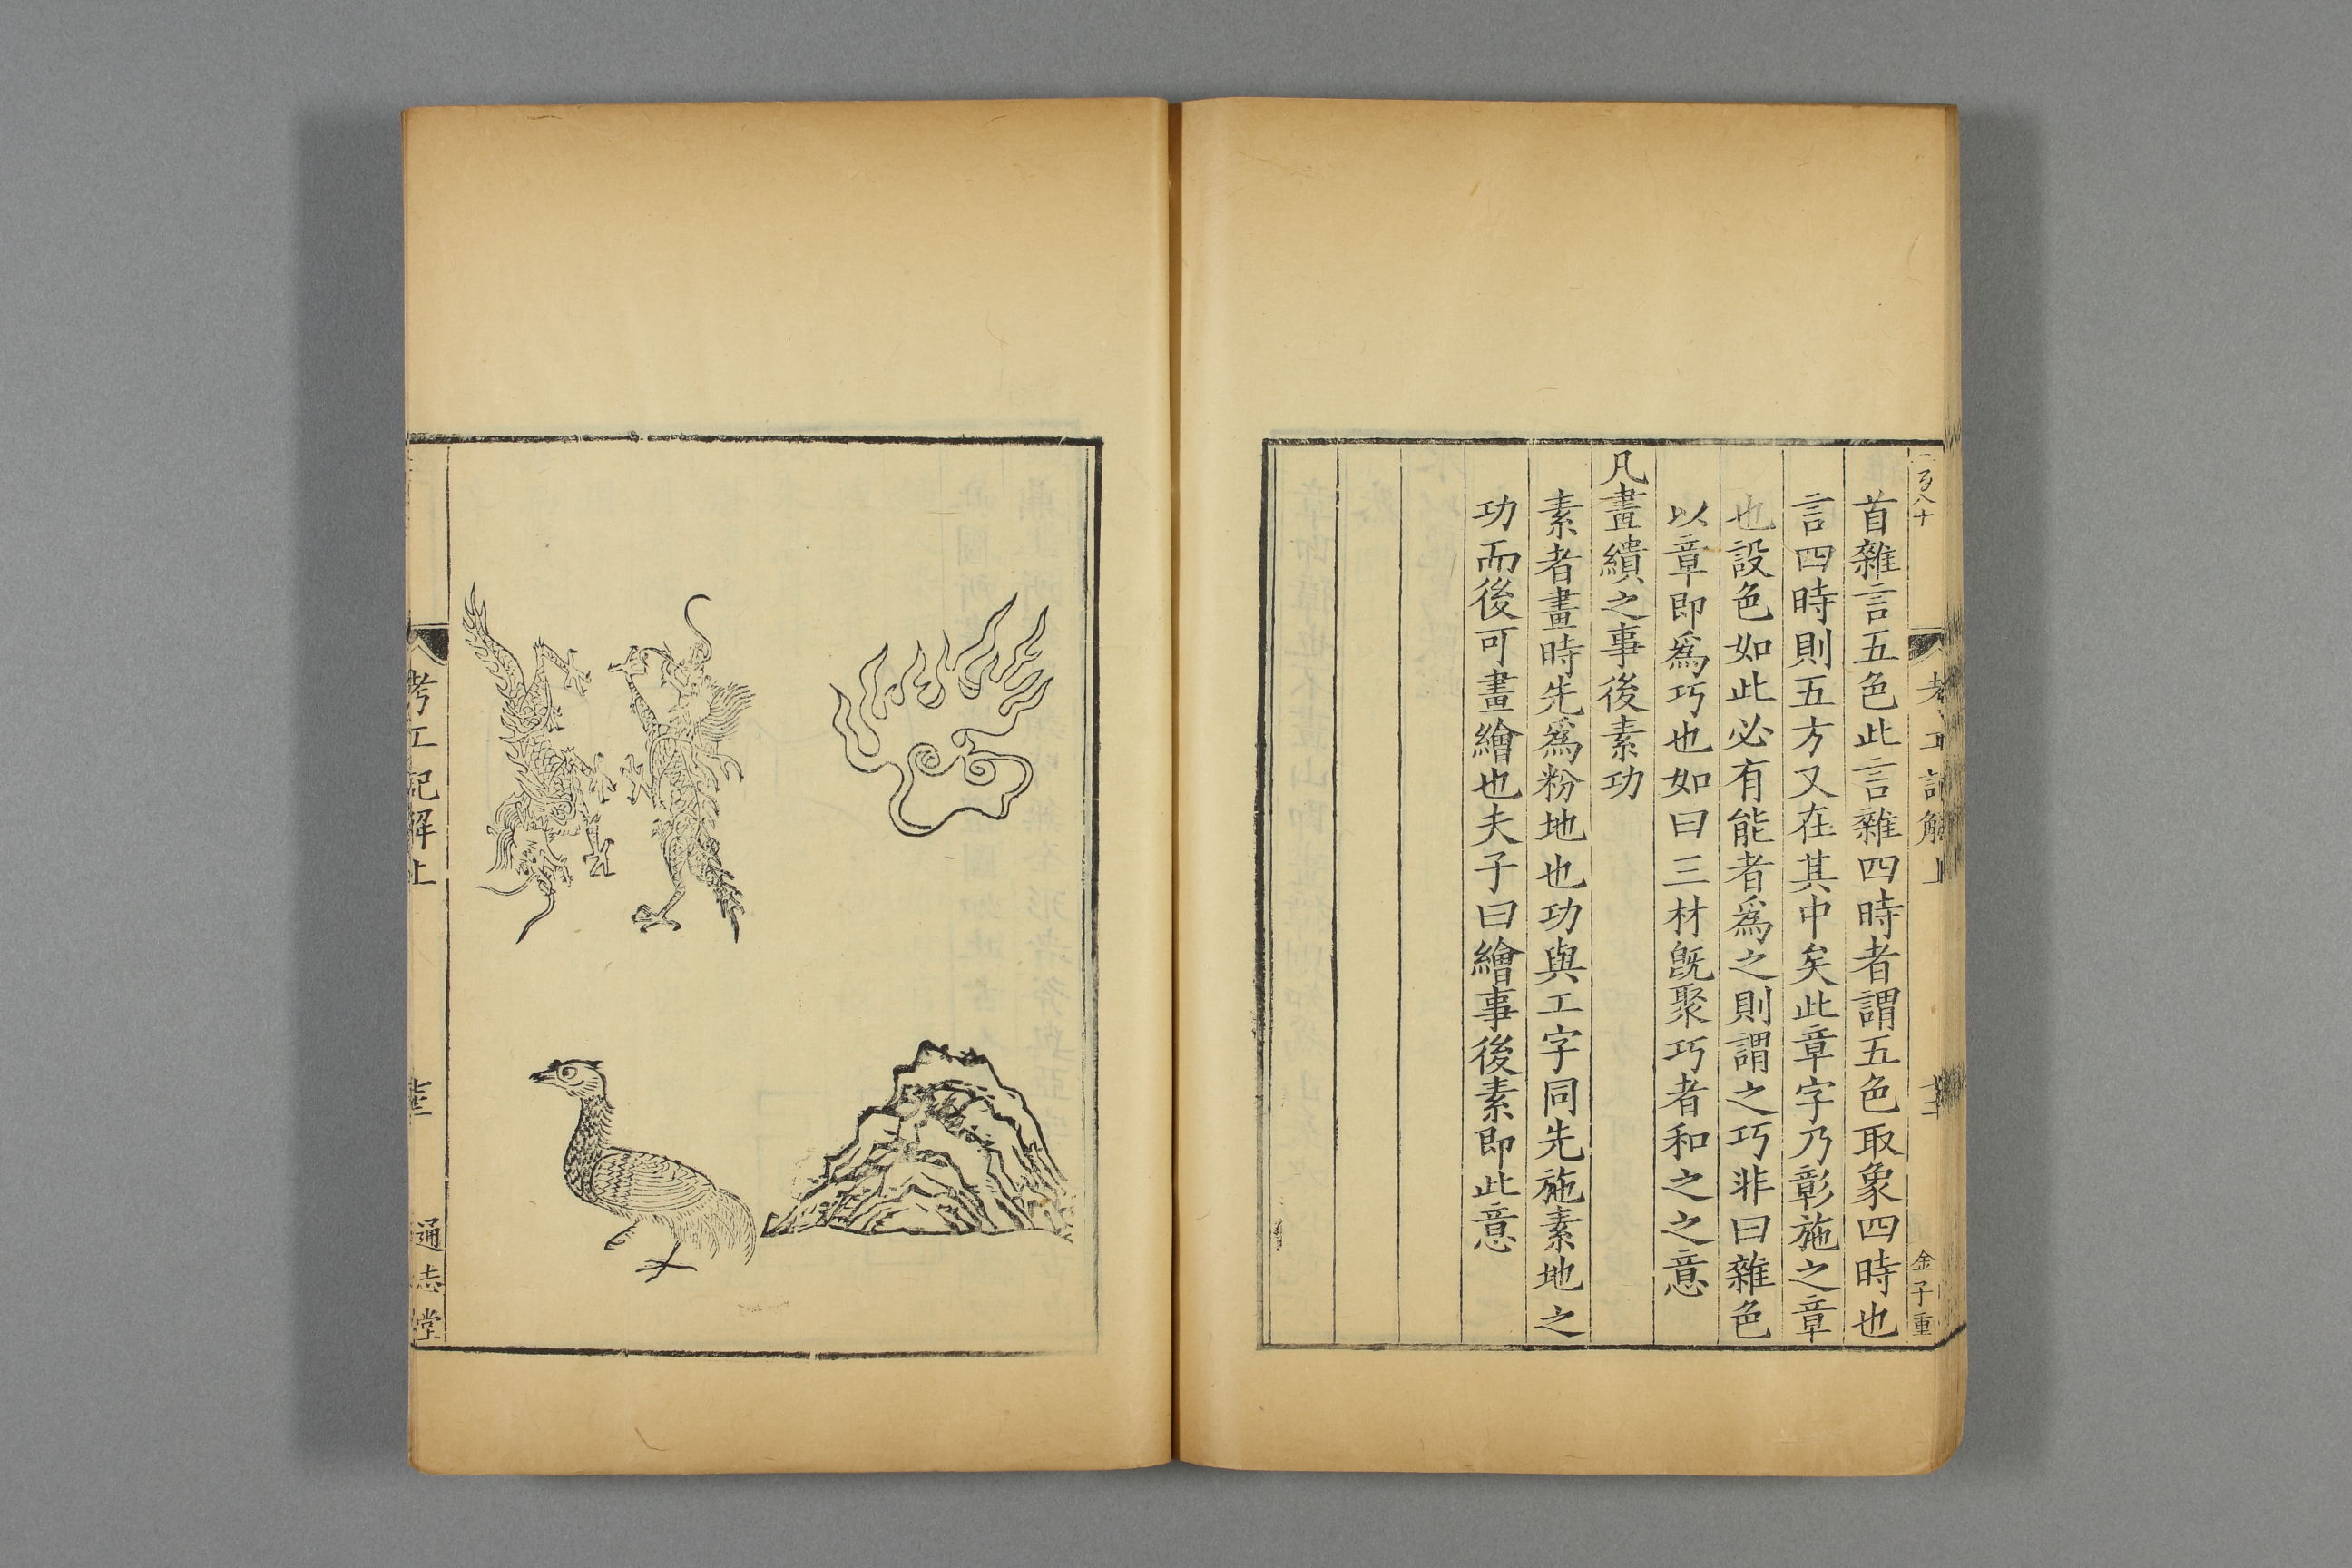 首雜言五色此言雜四時者謂五色取象四時也
言四時則五方又在其中矣此章字乃彰施之章
也設色如此必有能者爲之則謂之巧非曰雜色
以章即爲巧也如曰三材旣聚巧者和之之意
凡畫繢之事後素功
素者畫時先爲粉地也功與工字同先施素地之
功而後可畫繪也夫子曰繪事後素即此意
考工記解上
金子重
考工記解上
通志堂